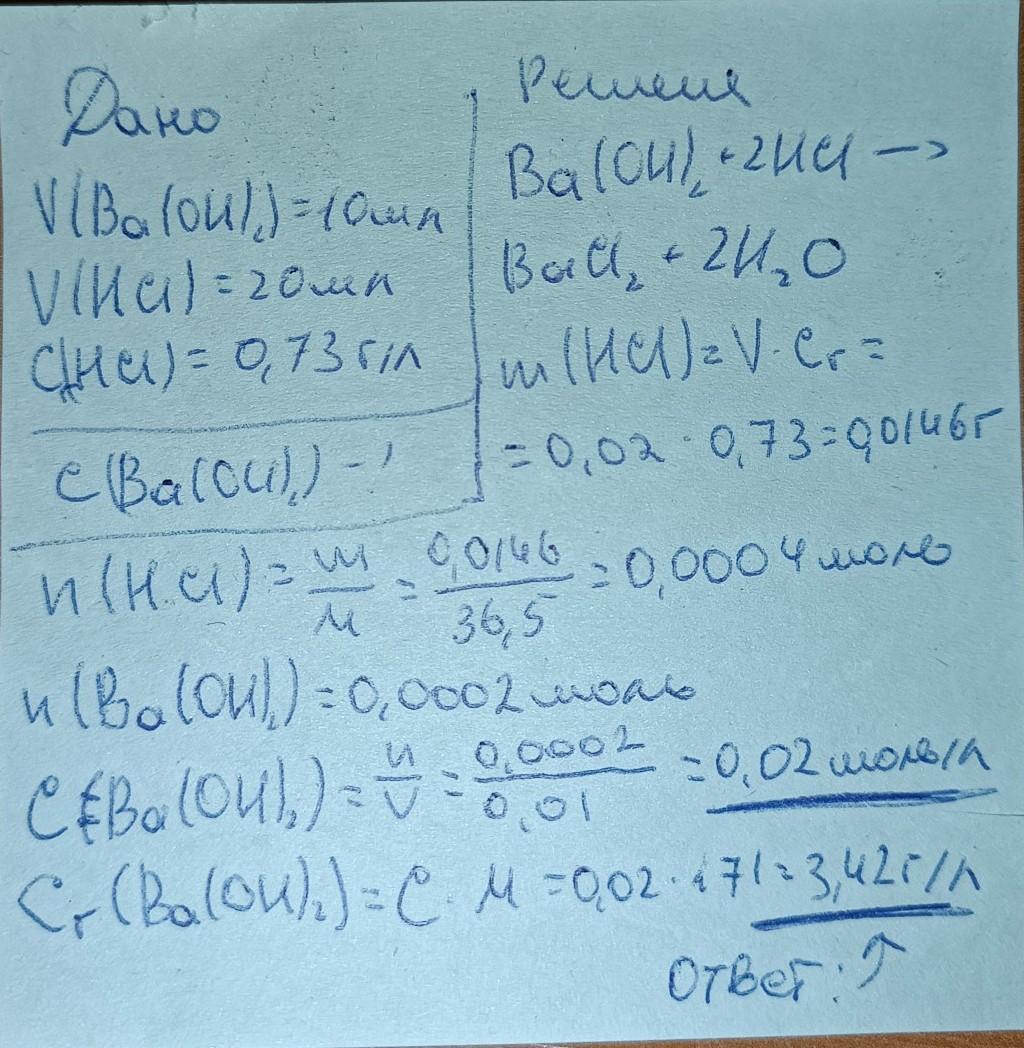 Дано
V(Ba(OH)₂)=10мл
V(HCl)=20мл
C(HCl)=0,73г/л
C(Ba(OH)₂)-?
Решение
Ba(OH)₂+2HCl→
BaCl₂+2H₂O
m(HCl)=V·Cг=
=0,02·0,73=0,0146г
n(HCl)=m/M=0,0146/36,5=0,0004моль
n(Ba(OH)₂)=0,0002моль
C(Ba(OH)₂)=n/V=0,0002/0,01=0,02моль/л
Cг(Ba(OH)₂)=C·M=0,02·171=3,42г/л
Ответ:↑